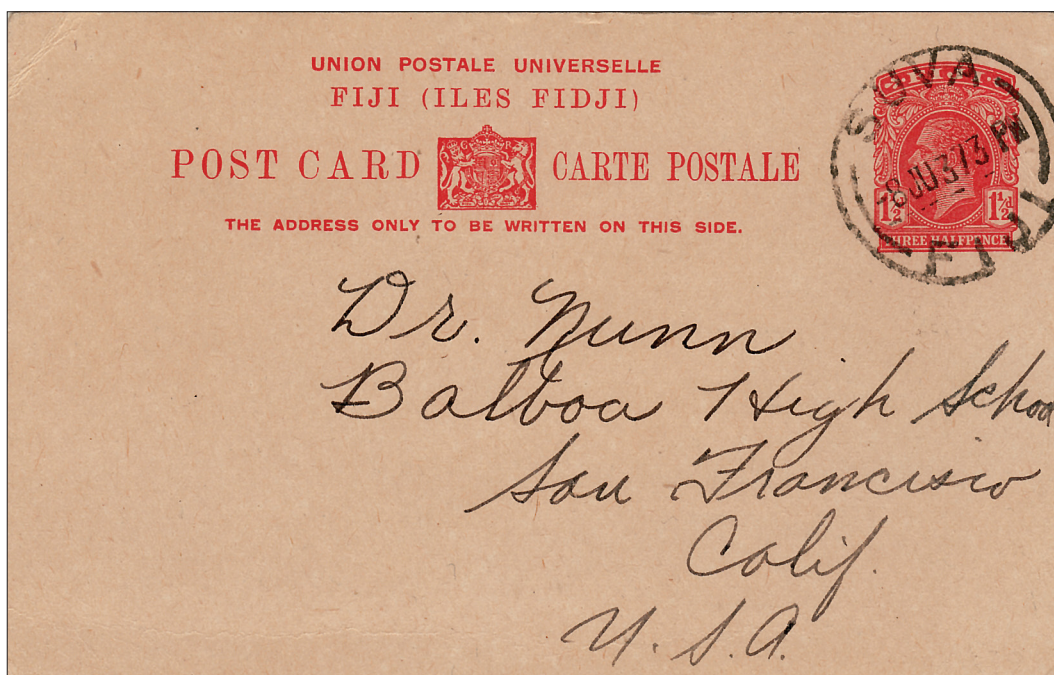 UNION POSTALE UNIVERSELLE
FIJI (ILES FIDJI)
POST CARD CARTE POSTALE
THE ADDRESS ONLY TO BE WRITTEN ON THIS SIDE.
SUVA
FIJI
1½ 1½d
THREE HALFPENCE
Dr. Nunn
Balboa High School
San Francisco
Calif.
U.S.A.